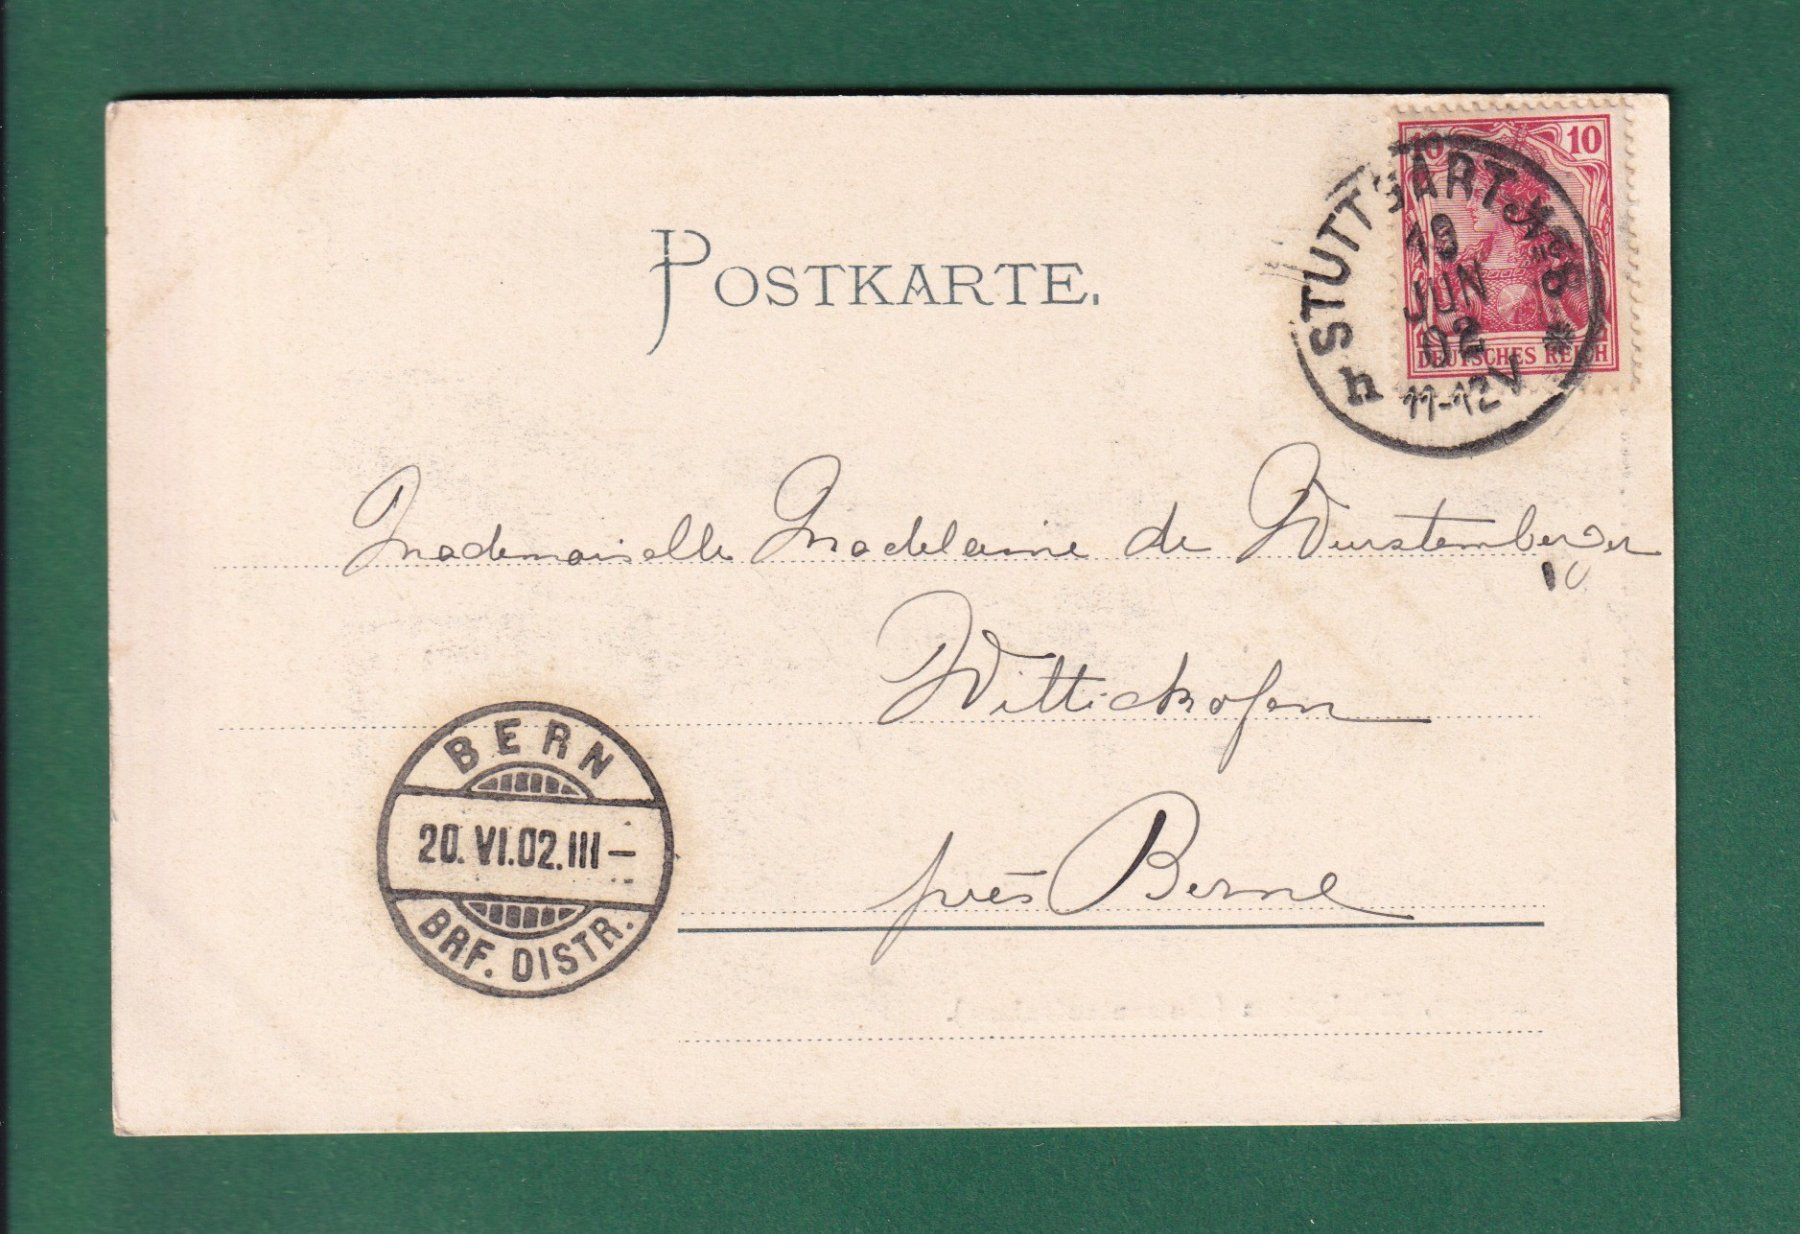 10 10
DEUTSCHES REICH
STUTTGART No 8
19
JUN
02
11-12V
h
POSTKARTE.
Mademoiselle Madelaine de Wurstemberger
Wittickofen
près Berne
BERN
20. VI.02. III –
BRF. DISTR.